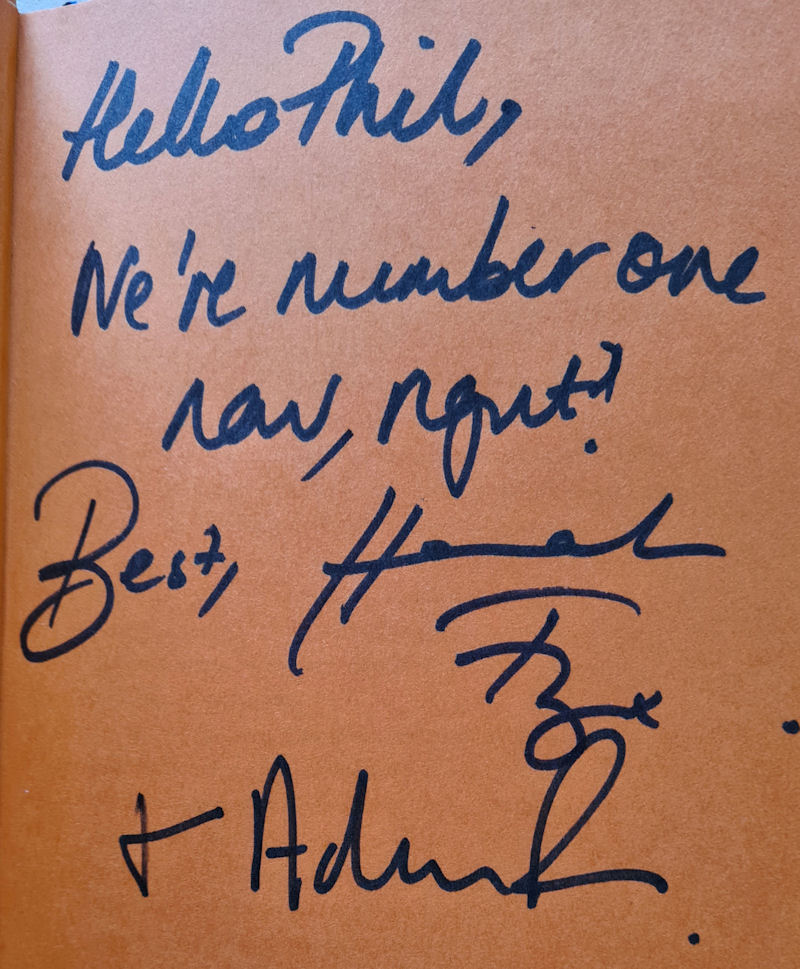 Hello Phil,
We're number one
now, right?
Best, Hannah
Fry x
+ Adam